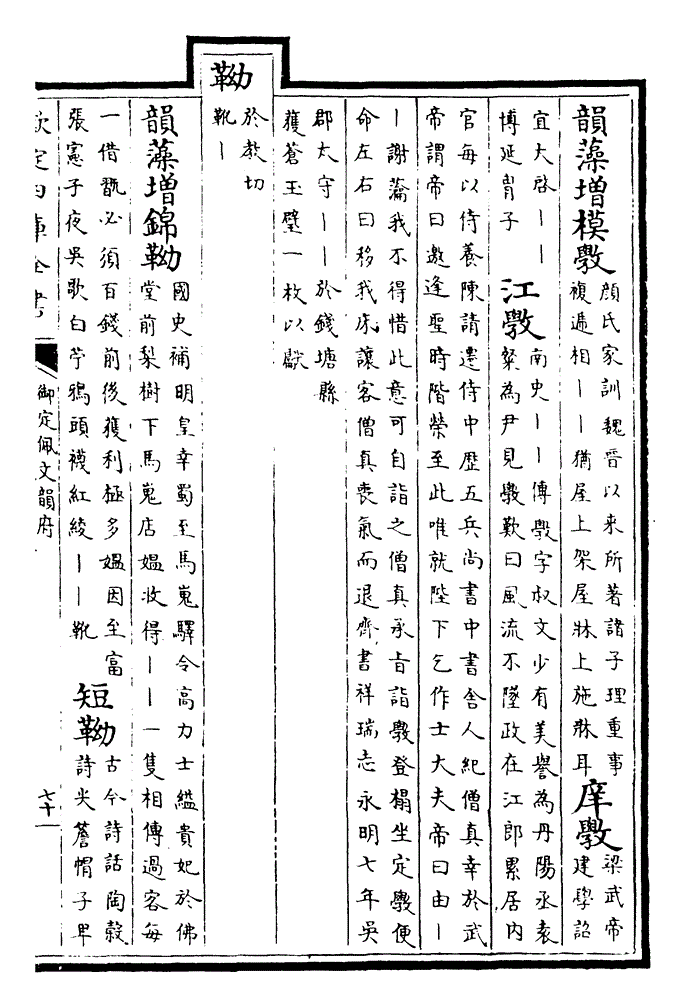 韻藻增模斆
顔氏家訓魏晉以來所著諸子理重事
複遞相——猶屋上架屋牀上施牀耳
庠斆
梁武帝
建學詔
宜大啓——
博延胄子
江斆
南史——傳斆字叔文少有美譽為丹陽丞袁
粲為尹見斆歎曰風流不墜政在江郎累居内
官每以侍養陳請遷侍中歴五兵尚書中書舍人紀僧真幸於武
帝謂帝曰邀逢聖時階榮至此唯就陛下乞作士大夫帝曰由—
—謝瀹我不得惜此意可自詣之僧真承旨詣斆登榻坐定斆便
命左右曰移我牀讓客僧真喪氣而退齊書祥瑞志永明七年吳
郡太守——於錢塘縣
獲蒼玉璧一枚以獻
靿
於教切
靴—
韻藻增錦靿
國史補明皇幸蜀至馬嵬驛令高力士縊貴妃於佛
堂前梨樹下馬嵬店媼收得——一隻相傳過客每
一借翫必須百錢前後獲利極多媼因至富
張憲子夜吳歌白苧鴉頭襪紅綾——靴
短靿
古今詩話陶穀
詩尖簷帽子卑
欽定四庫全書
御定佩文韻府
七十